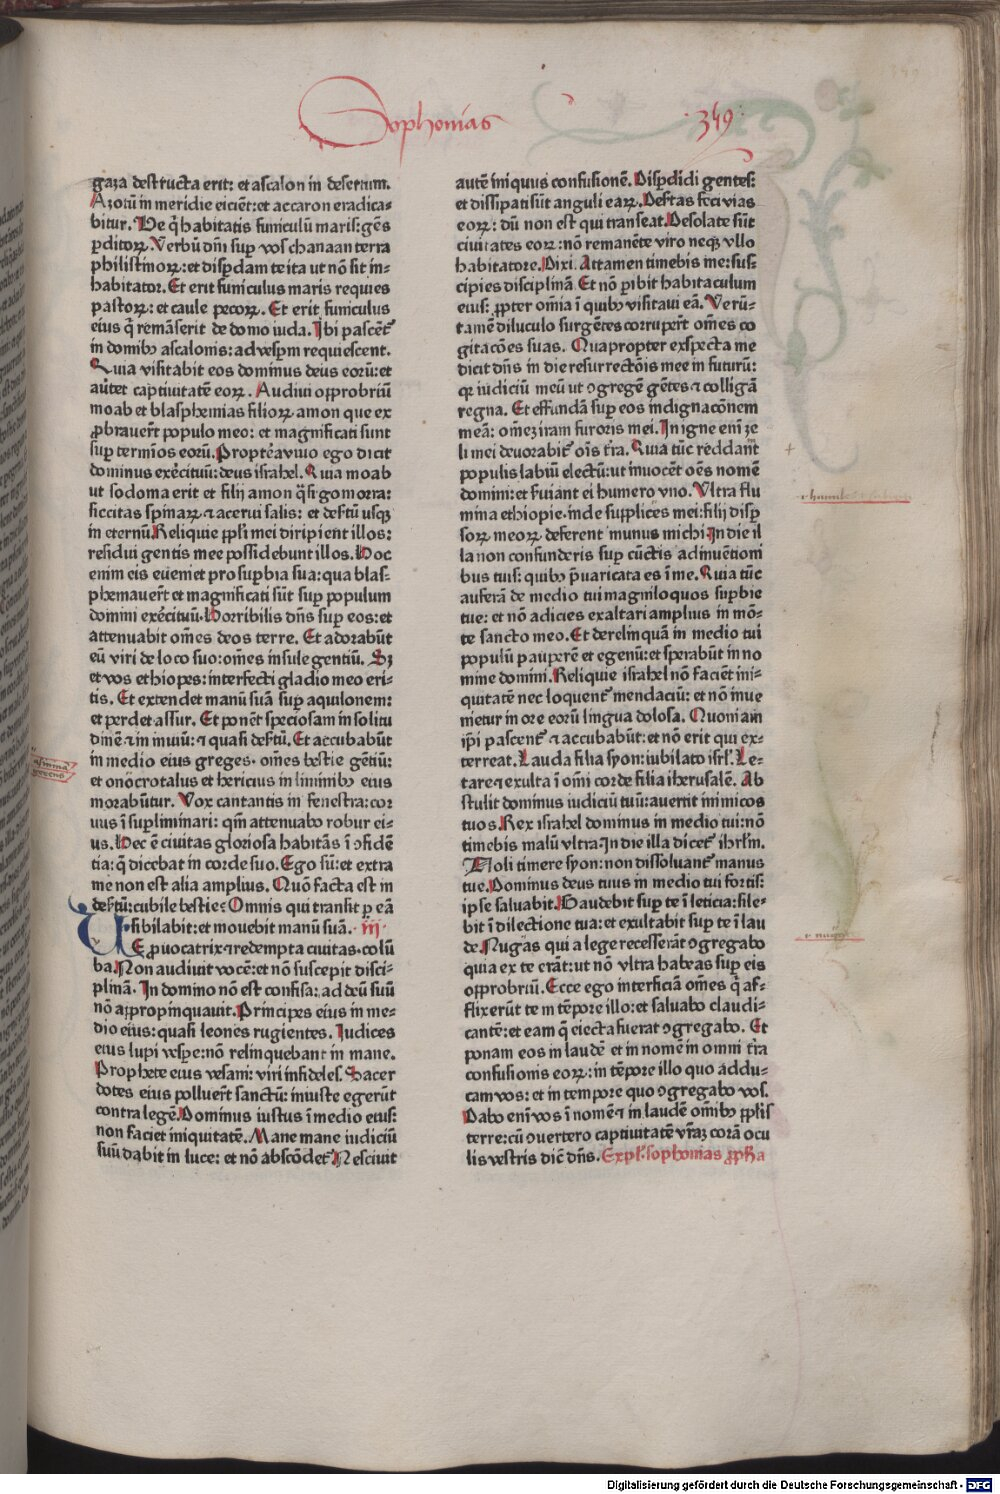 Sophonias
349
gaza destructa erit: et ascalon in desertum.
Azotū in meridie eiciēt: et accaron eradica-
bitur. Ve q̄ habitatis funiculū maris: gēs
ꝑditoꝝ. Verbū dn̄i suꝑ vos chanaan terra
philistinoꝝ: et disꝑdam te ita ut nō sit in-
habitator. Et erit funiculus maris requies
pastoꝝ: et caule pecoꝝ. Et erit funiculus
eius q̄ remāserit de domo iuda. Ibi pascēt᷑
in domibꝰ ascalonis: ad vesꝑm requiescent.
Quia visitabit eos dominus deus eorū: et
aūtet captivitatē eoꝝ. Audivi oppꝛobriū
moab et blasphemias filioꝝ amon que ex
ꝓbraver̄t populo meo: et magnificati sunt
suꝑ termīos eorū. Propterea vivo ego dicit
dominus exercituū: deus israhel. Quia moab
ut sodoma erit et filij amon q̄si gomorra:
siccitas spinaꝝ ⁊ acervi salis: et des̄tū usqꝫ
in eternū. Reliquie ppl̄i mei diripient illos:
residui gentis mee possidebunt illos. Hoc
enim eis eveniet pro suꝑbia sua: qua blas-
phemaver̄t et magnificati sūt suꝑ populum
domini exercituū. Horribilis dn̄s suꝑ eos: et
attenuabit om̄es deos terre. Et adorabūt
eū viri de loco suo: om̄es insule gentiū. Sꝫ
et vos ethiopes: interfecti gladio meo eri-
tis. Et extendet manū suā suꝑ aquilonem:
et perdet assur. Et ponēt speciosam in solitu
dinē ⁊ in inviū: ⁊ quasi des̄tū. Et accubabūt
in medio eius greges. om̄es bestie gētiū:
et onōcrotalus et hericius in liminibꝰ eius
morabūtur. Vox cantantis in fenestra: cor
vus ī suꝑliminari: qm̄ attenuabo robur ei-
us. Hec ē civitas gloriosa habitās ī ꝯfidē
tia: q̄ dicebat in corde suo. Ego sū: et extra
me non est alia amplius. Quō facta est in
des̄tū: cubile bestie? Omnis qui transit ꝑ eā
sibilabit: et movebit manū suā. ·iii·
VE ꝓvocatrix ⁊ redempta civitas. colū
ba. Non audivit vocē: et nō suscepit disci-
plinā. In domino nō est confisa: ad deū suū
nō appropinquavit. Principes eius in me-
dio eius: quasi leones rugientes. Iudices
eius lupi vesꝑe: nō relinquebant in mane.
Prophete eius vesani: viri infideles. Sacer
dotes eius polluer̄t sanctū: iniuste egerūt
contra legē. Dominus iustus ī medio eius:
non faciet iniquitatē. Mane mane iudiciū
suū dabit in luce: et nō abscōdet᷑. Nescivit
autē iniquus confusionē. Disꝑdidi gentes:
et dissipati sūt anguli eaꝝ. Des̄tas feci vias
eoꝝ: dū non est qui transeat. Desolate sūt
civitates eoꝝ: nō remanēte viro neqꝫ vllo
habitatore. Dixi. Attamen timebis me: sus-
cipies disciplinā. Et nō ꝑibit habitaculum
eius: ꝓpter om̄ia ī quibꝰ visitavi eā. Verū-
tamē diluculo surgētes corruper̄t om̄es co
gitacōes suas. Quapropter exspecta me
dicit dn̄s in die resurrectōis mee in futurū:
qꝛ iudiciū meū ut ꝯgregē gētes ⁊ colligā
regna. Et effundā suꝑ eos indignacōnem
meā: om̄eꝫ iram furoris mei. In igne enī ze
li mei devorabit᷑ oīs t̄ra. Quia tūc reddam̄
populis labiū electū: ut invocēt oēs nomē
domini: et ſviant ei humero vno. Vltra flu
mina ethiopie. inde supplices mei: filij disꝑ
soꝝ meoꝝ deferent munus michi. In die il
la non confunderis suꝑ cūctis adinuētioni
bus tuis: quibꝰ p̄varicata es ī me. Quia tūc
auferā de medio tui magniloquos suꝑbie
tue: et nō adicies exaltari amplius in mō-
te sancto meo. Et derelinquā in medio tui
populū pauperē et egenū: et sperabūt in no
mine domini. Reliquie israhel nō faciēt ini-
quitatē nec loquent᷑ mendaciū: et nō inve
nietur in ore eorū lingua dolosa. Quoniam
ip̄i pascent᷑ ⁊ accubabūt: et nō erit qui ex-
terreat. Lauda filia syon: iubilato isrl̄. Le-
tare ⁊ exulta ī om̄i corde filia iherusalē. Ab
stulit dominus iudiciū tuū: avertit inimicos
tuos. Rex israhel dominus in medio tui: nō
timebis malū vltra. In die illa dicet᷑ ihrl̄m.
Noli timere syon: non dissolvant᷑ manus
tue. Dominus deus tuus in medio tui fortis:
ipse salvabit. Gaudebit suꝑ te ī leticia: sile-
bit ī dilectione tua: et exultabit suꝑ te ī lau
de. Nugas qui a lege recesserāt ꝯgregabo
quia ex te erāt: ut nō vltra habeas suꝑ eis
opprobriū. Ecce ego interficiā om̄es q̄ af-
flixerūt te in tēpore illo: et salvabo claudi-
cantē: et eam q̄ eiecta fuerat ꝯgregabo. Et
ponam eos in laudē et in nomē in omni t̄ra
confusionis eoꝝ: in tēpore illo quo addu-
cam vos: et in tempore quo ꝯgregabo vos.
Dabo enī vos ī nomē ⁊ in laudē om̄ibꝰ ppl̄is
terre: cū ꝯvertero captivitatē vr̄aꝫ corā ocu
lis vestris dic̄ dn̄s. Expl̄. sophonias ꝓph̄a
Digitalisierung gefördert durch die Deutsche Forschungsgemeinschaft - DFG